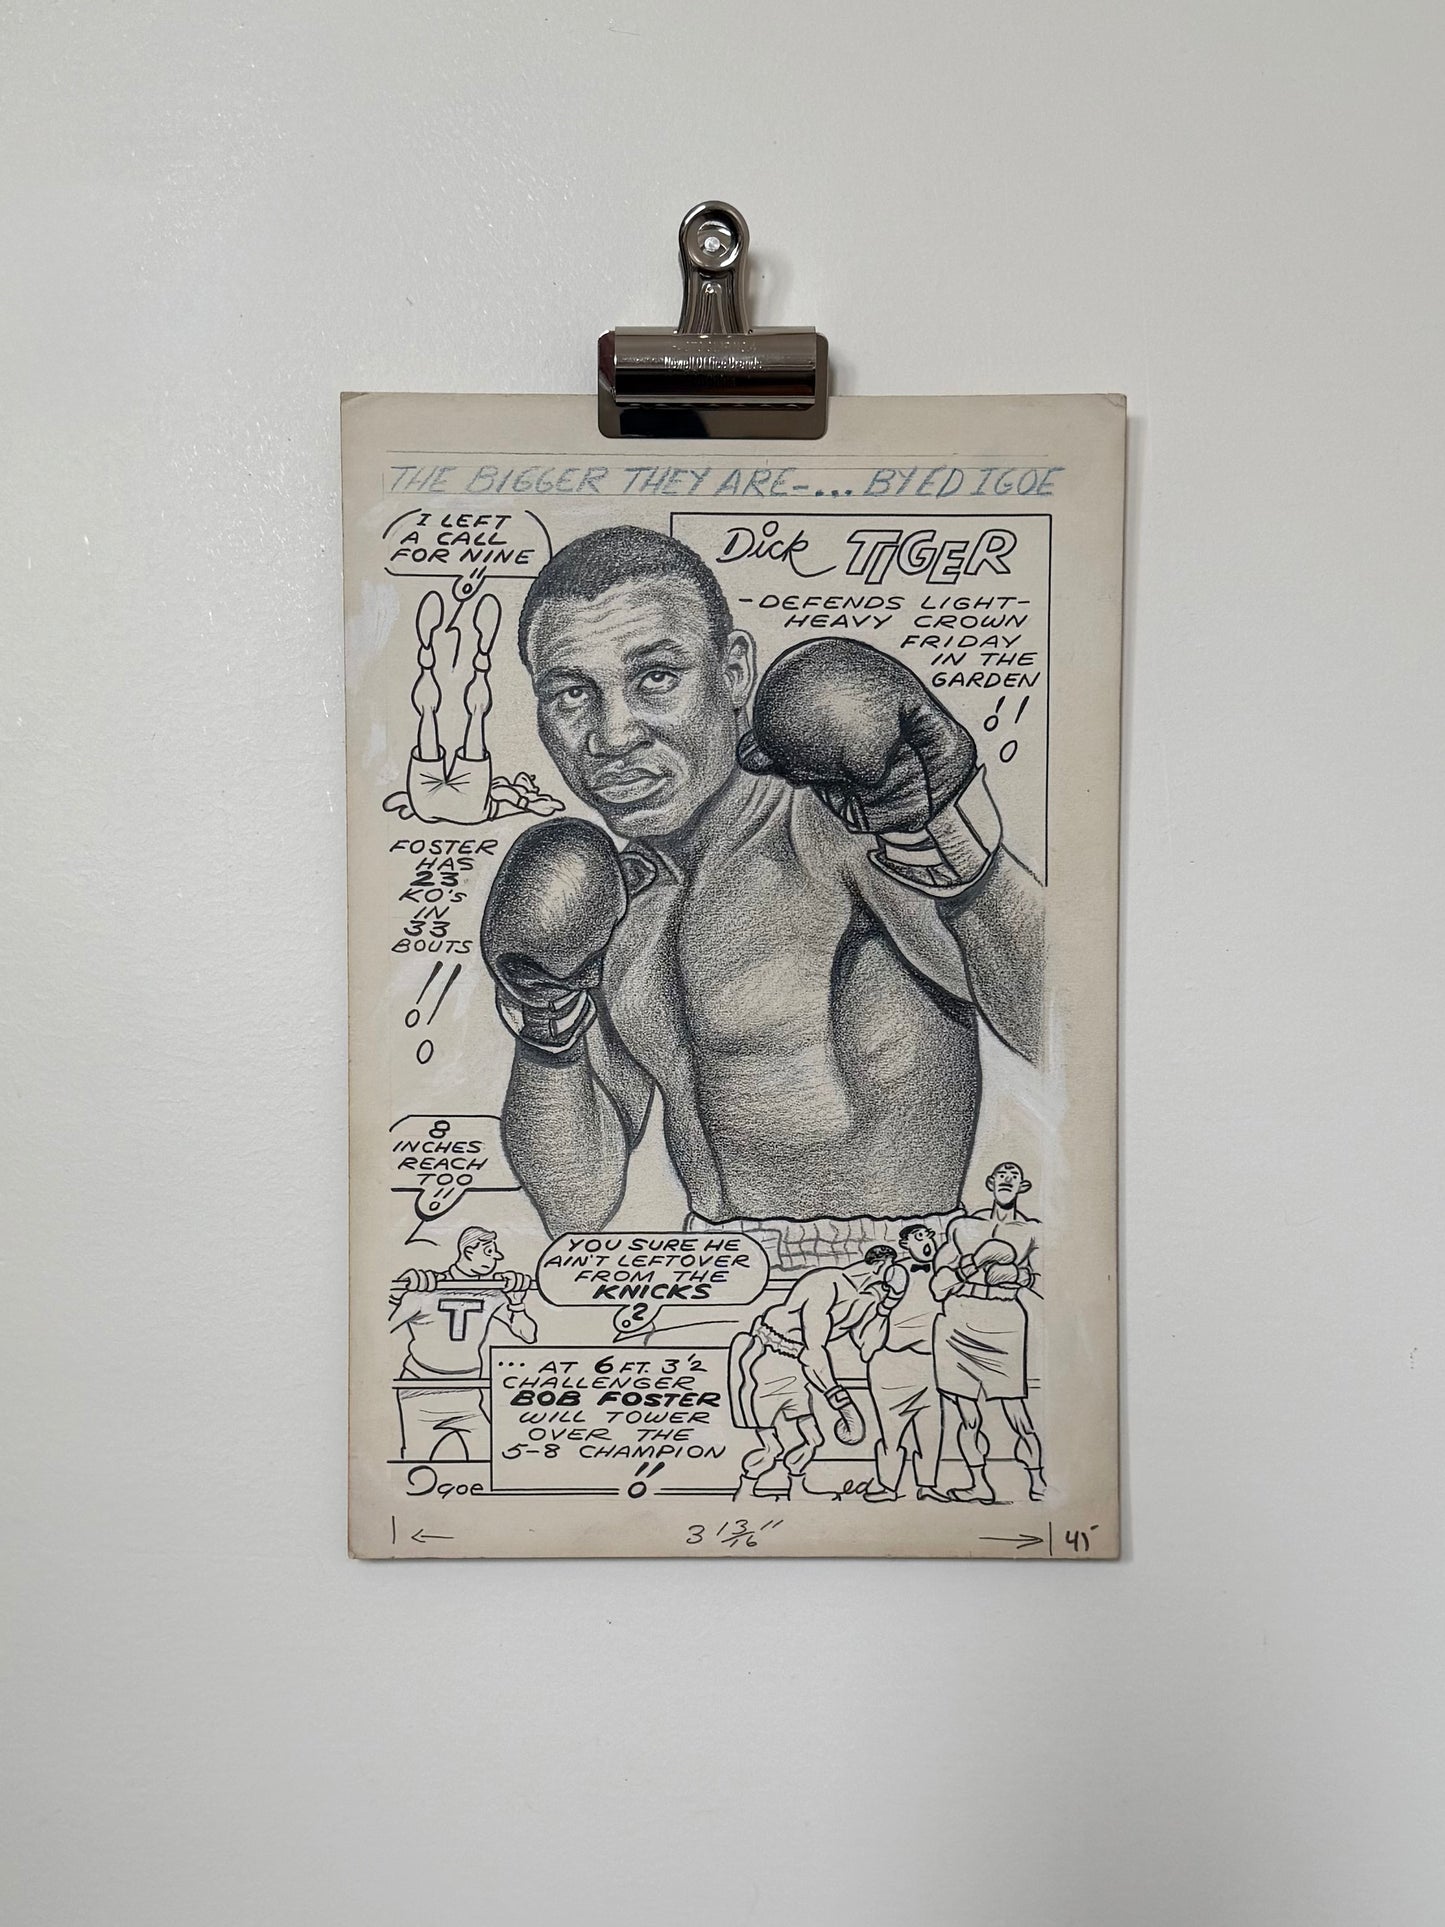 Newell Office Brands
THE BIGGER THEY ARE-... BY ED IGOE
I LEFT
A CALL
FOR NINE
!!
Dick TIGER
-DEFENDS LIGHT-
HEAVY CROWN
FRIDAY
IN THE
GARDEN
!!
FOSTER
HAS
23
KO's
IN
33
BOUTS
!!
8
INCHES
REACH
TOO
!!
YOU SURE HE
AIN'T LEFTOVER
FROM THE
KNICKS
?
T
... AT 6 FT. 3 1/2
CHALLENGER
BOB FOSTER
WILL TOWER
OVER THE
5-8 CHAMPION
!!
Igoe
ed
3 13/16"
45